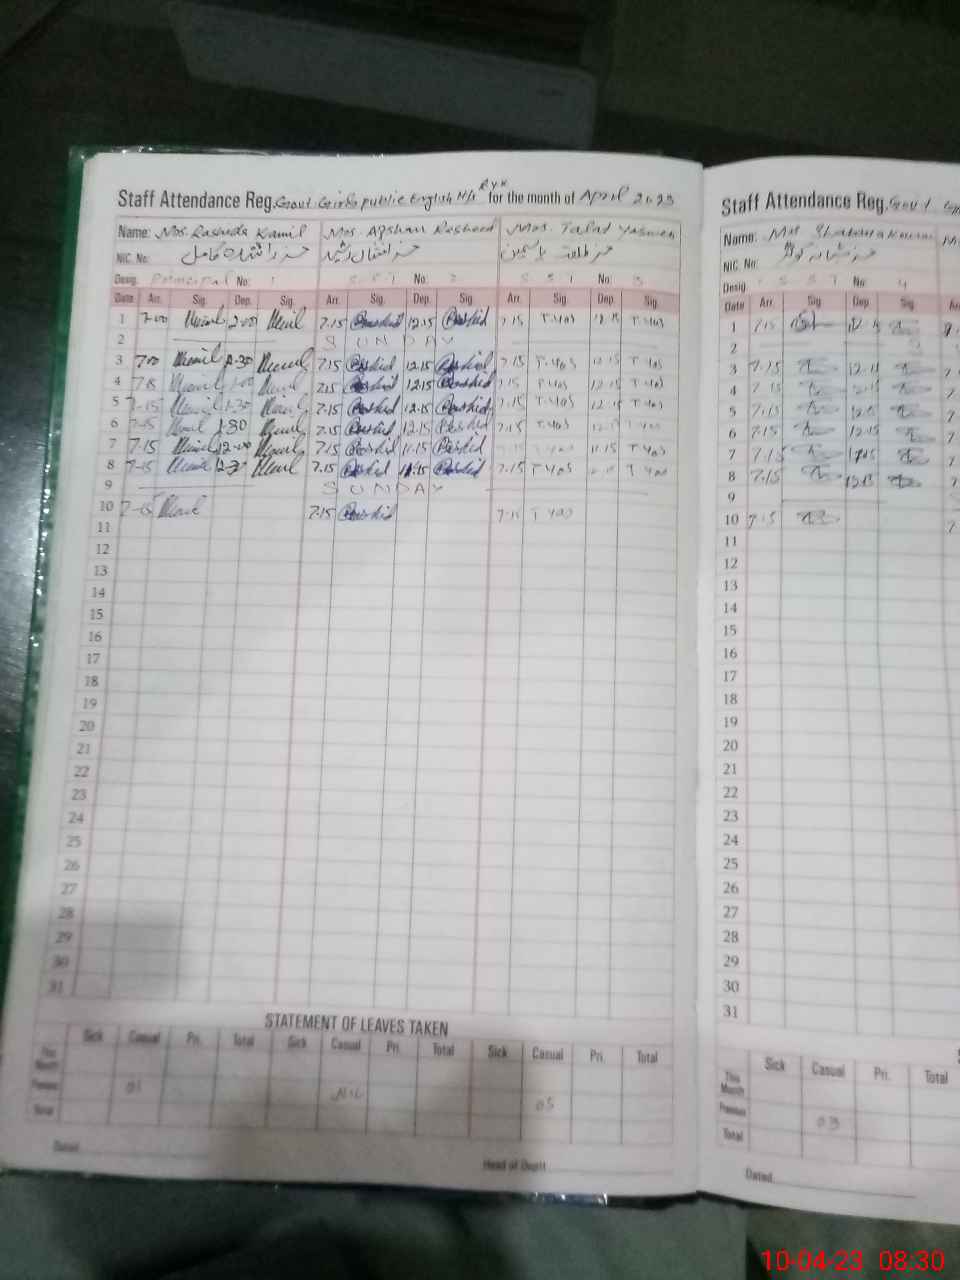 Staff Attendance Reg. Govt. Girls public English H/s RYK for the month of April 2023
Name: Mrs. Rashida Kamil Mrs. Afshan Rasheed Mrs. Talat Yasmeen
NIC. No: مسز راشدہ کامل مسز افشاں رشید مسز طلعت یاسمین
Desig. Principal No: 1 S.S.T No: 2 S S T 3
Date Arr. Sig. Dep. Sig. Arr. Sig. Dep. Sig. Arr. Sig. Dep. Sig.
1 7-00 Kamil 2-00 Kamil 7.15 Rashid 12.15 Rashid 7.15 T.Yas 12.15 T.Yas
2 SUNDAY
3 7-00 Kamil Kamil 7.15 Rashid 12.15 Rashid 7.15 T.Yas 12.15 T.Yas
4 Kamil 1-00 Kamil 7.15 Rashid 12.15 Rashid 7.15 T.Yas 12.15 T.Yas
5 7-15 Kamil 1-30 Kamil 7.15 Rashid 12.15 Rashid 7.15 T.Yas 12.15 T.Yas
6 7-15 Kamil 1-30 Kamil 7.15 Rashid 12.15 Rashid 7.15 T.Yas 12.15 T.Yas
7 7-15 Kamil 12-00 Kamil 7.15 Rashid 11.15 Rashid T.Yas 11.15 T.Yas
8 7-15 Kamil Kamil 7.15 Rashid Rashid 7.15 T.Yas T.Yas
9 SUNDAY
10 7-15 Kamil 7.15 Rashid 7.15 T Yas
11
12
13
14
15
16
17
18
19
20
21
22
23
24
25
26
27
28
29
30
31
STATEMENT OF LEAVES TAKEN
Sick Casual Pri. Total Sick Casual Pri. Total Sick Casual Pri. Total
This Month
Previous 01 NIL 05
Total
Dated Head of Deptt.
Staff Attendance Reg. Govt
Name: Mrs Shabana Kausar
NIC. No: مسز شبانہ کوثر
Desig. S S T 4
Date Arr. Sig. Dep. Sig.
1 7.15 12.15
2
3 7.15 12.15
4 7.15 12.15
5 7.15 12.15
6 7.15 12.15
7 7.15
8 7.15 12.15
9
10 7.15
11
12
13
14
15
16
17
18
19
20
21
22
23
24
25
26
27
28
29
30
31
Sick Casual Pri. Total
This Month
Previous 03
Total
Dated
10-04-23 08:30